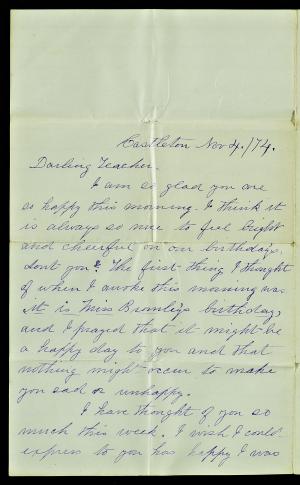 Castleton Nov 4./74.
Darling Teacher.
I am so glad you are
so happy this morning. I think it
is always so nice to feel bright
and cheerful on our birthdays,
dont you? The first thing I thought
of when I awoke this morning was
it is Miss Bromley's birthday,
and I prayed that it might be
a happy day to you and that
nothing might occur to make
you sad or unhappy.
I have thought of you so
much this week. I wish I could
express to you how happy I was